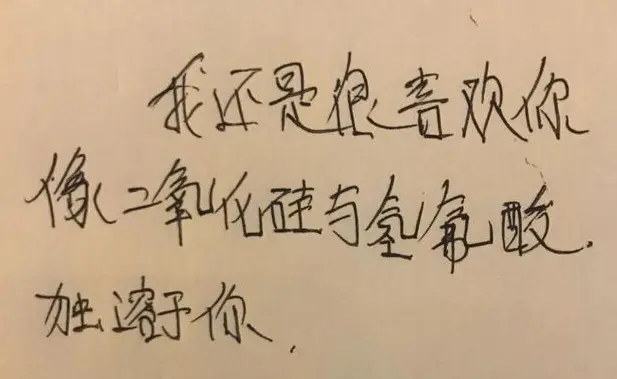 我还是很喜欢你
像二氧化硅与氢氟酸.
独溶于你.